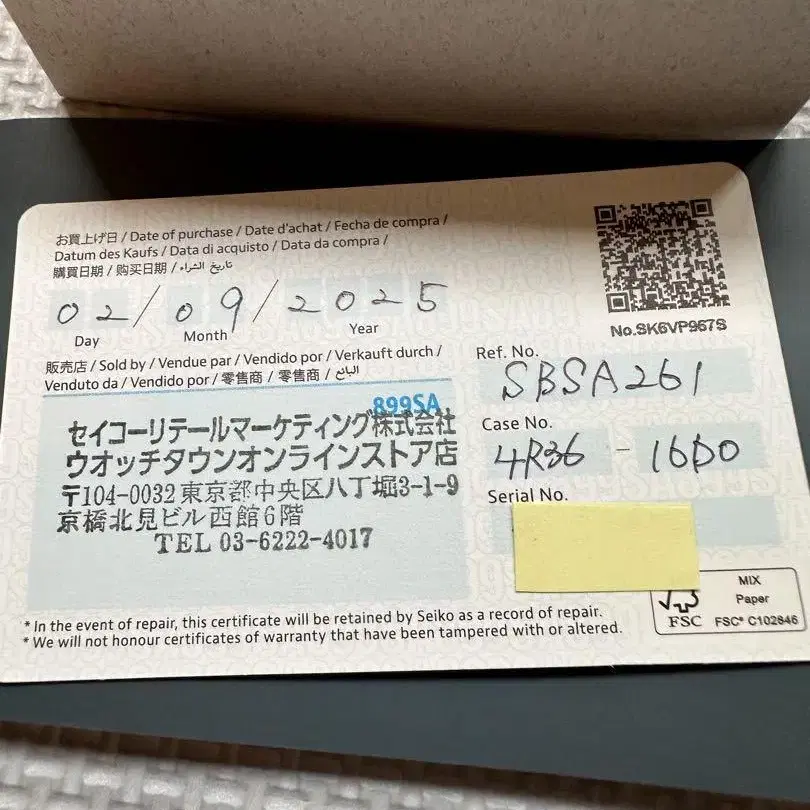 お買上げ日 / Date of purchase / Date d'achat / Fecha de compra /
Datum des Kaufs / Data di acquisto / Data da compra /
購買日期 / 购买日期 / تاريخ الشراء
02/09/2025
Day Month Year
No.SK6VP967S
販売店 / Sold by / Vendue par / Vendido por / Verkauft durch /
Venduto da / Vendido por / 零售商 / 零售商 / البائع
899SA
セイコーリテールマーケティング株式会社
ウオッチタウンオンラインストア店
〒104-0032 東京都中央区八丁堀3-1-9
京橋北見ビル西館6階
TEL 03-6222-4017
Ref. No.
SBSA261
Case No.
4R36 - 16D0
Serial No.
* In the event of repair, this certificate will be retained by Seiko as a record of repair.
* We will not honour certificates of warranty that have been tampered with or altered.
FSC
MIX
Paper
FSC® C102846